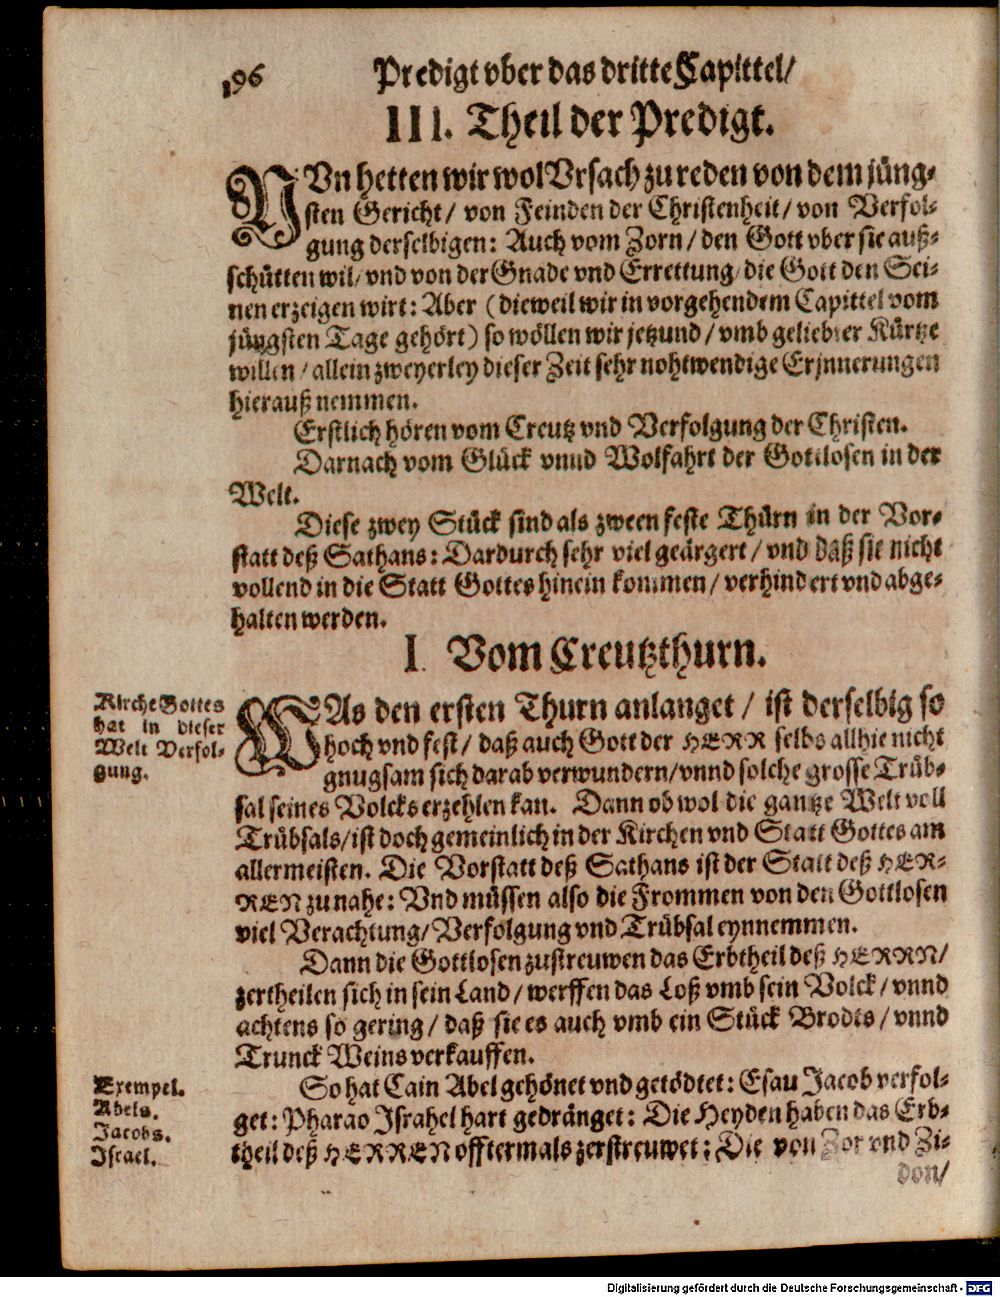 196 Predigt vber das dritte Capittel/
III. Theil der Predigt.
NVn hetten wir wol Vrsach zu reden von dem jüng-
sten Gericht/ von Feinden der Christenheit/ von Verfol-
gung derselbigen: Auch vom Zorn/ den Gott vber sie auß-
schütten wil/ vnd von der Gnade vnd Errettung/ die Gott den Sei-
nen erzeigen wirt: Aber (dieweil wir in vorgehendem Capittel vom
jüngsten Tage gehört) so wöllen wir jetzund/ vmb geliebter Kürtze
willen/ allein zweyerley dieser Zeit sehr nohtwendige Erjnnerungen
hierauß nemmen.
Erstlich hören vom Creutz vnd Verfolgung der Christen.
Darnach vom Glück vnnd Wolfahrt der Gottlosen in der
Welt.
Diese zwey Stück sind als zween feste Thürn in der Vor-
statt deß Sathans: Dardurch sehr viel geärgert/ vnd daß sie nicht
vollend in die Statt Gottes hinein kommen/ verhindert vnd abge-
halten werden.
I. Vom Creutzthurn.
Kirche Gottes
hat in dieser
Welt Verfol-
gung.
WAs den ersten Thurn anlanget/ ist derselbig so
hoch vnd fest/ daß auch Gott der HERR selbs allhie nicht
gnugsam sich darab verwundern/ vnnd solche grosse Trüb-
sal seines Volcks erzehlen kan. Dann ob wol die gantze Welt voll
Trübsals/ ist doch gemeinlich in der Kirchen vnd Statt Gottes am
allermeisten. Die Vorstatt deß Sathans ist der Statt deß HER-
REN zu nahe: Vnd müssen also die Frommen von den Gottlosen
viel Verachtung/ Verfolgung vnd Trübsal eynnemmen.
Dann die Gottlosen zustreuwen das Erbtheil deß HERRN/
zertheilen sich in sein Land/ werffen das Loß vmb sein Volck/ vnnd
achtens so gering/ daß sie es auch vmb ein Stück Brodts/ vnnd
Trunck Weins verkauffen.
Exempel.
Abels.
Jacobs.
Israel.
So hat Cain Abel gehönet vnd getödtet: Esau Jacob verfol-
get: Pharao Israhel hart gedränget: Die Heyden haben das Erb-
theil deß HERREN offtermals zerstreuwet: Die von Zor vnd Zi-
don/
Digitalisierung gefördert durch die Deutsche Forschungsgemeinschaft - DFG